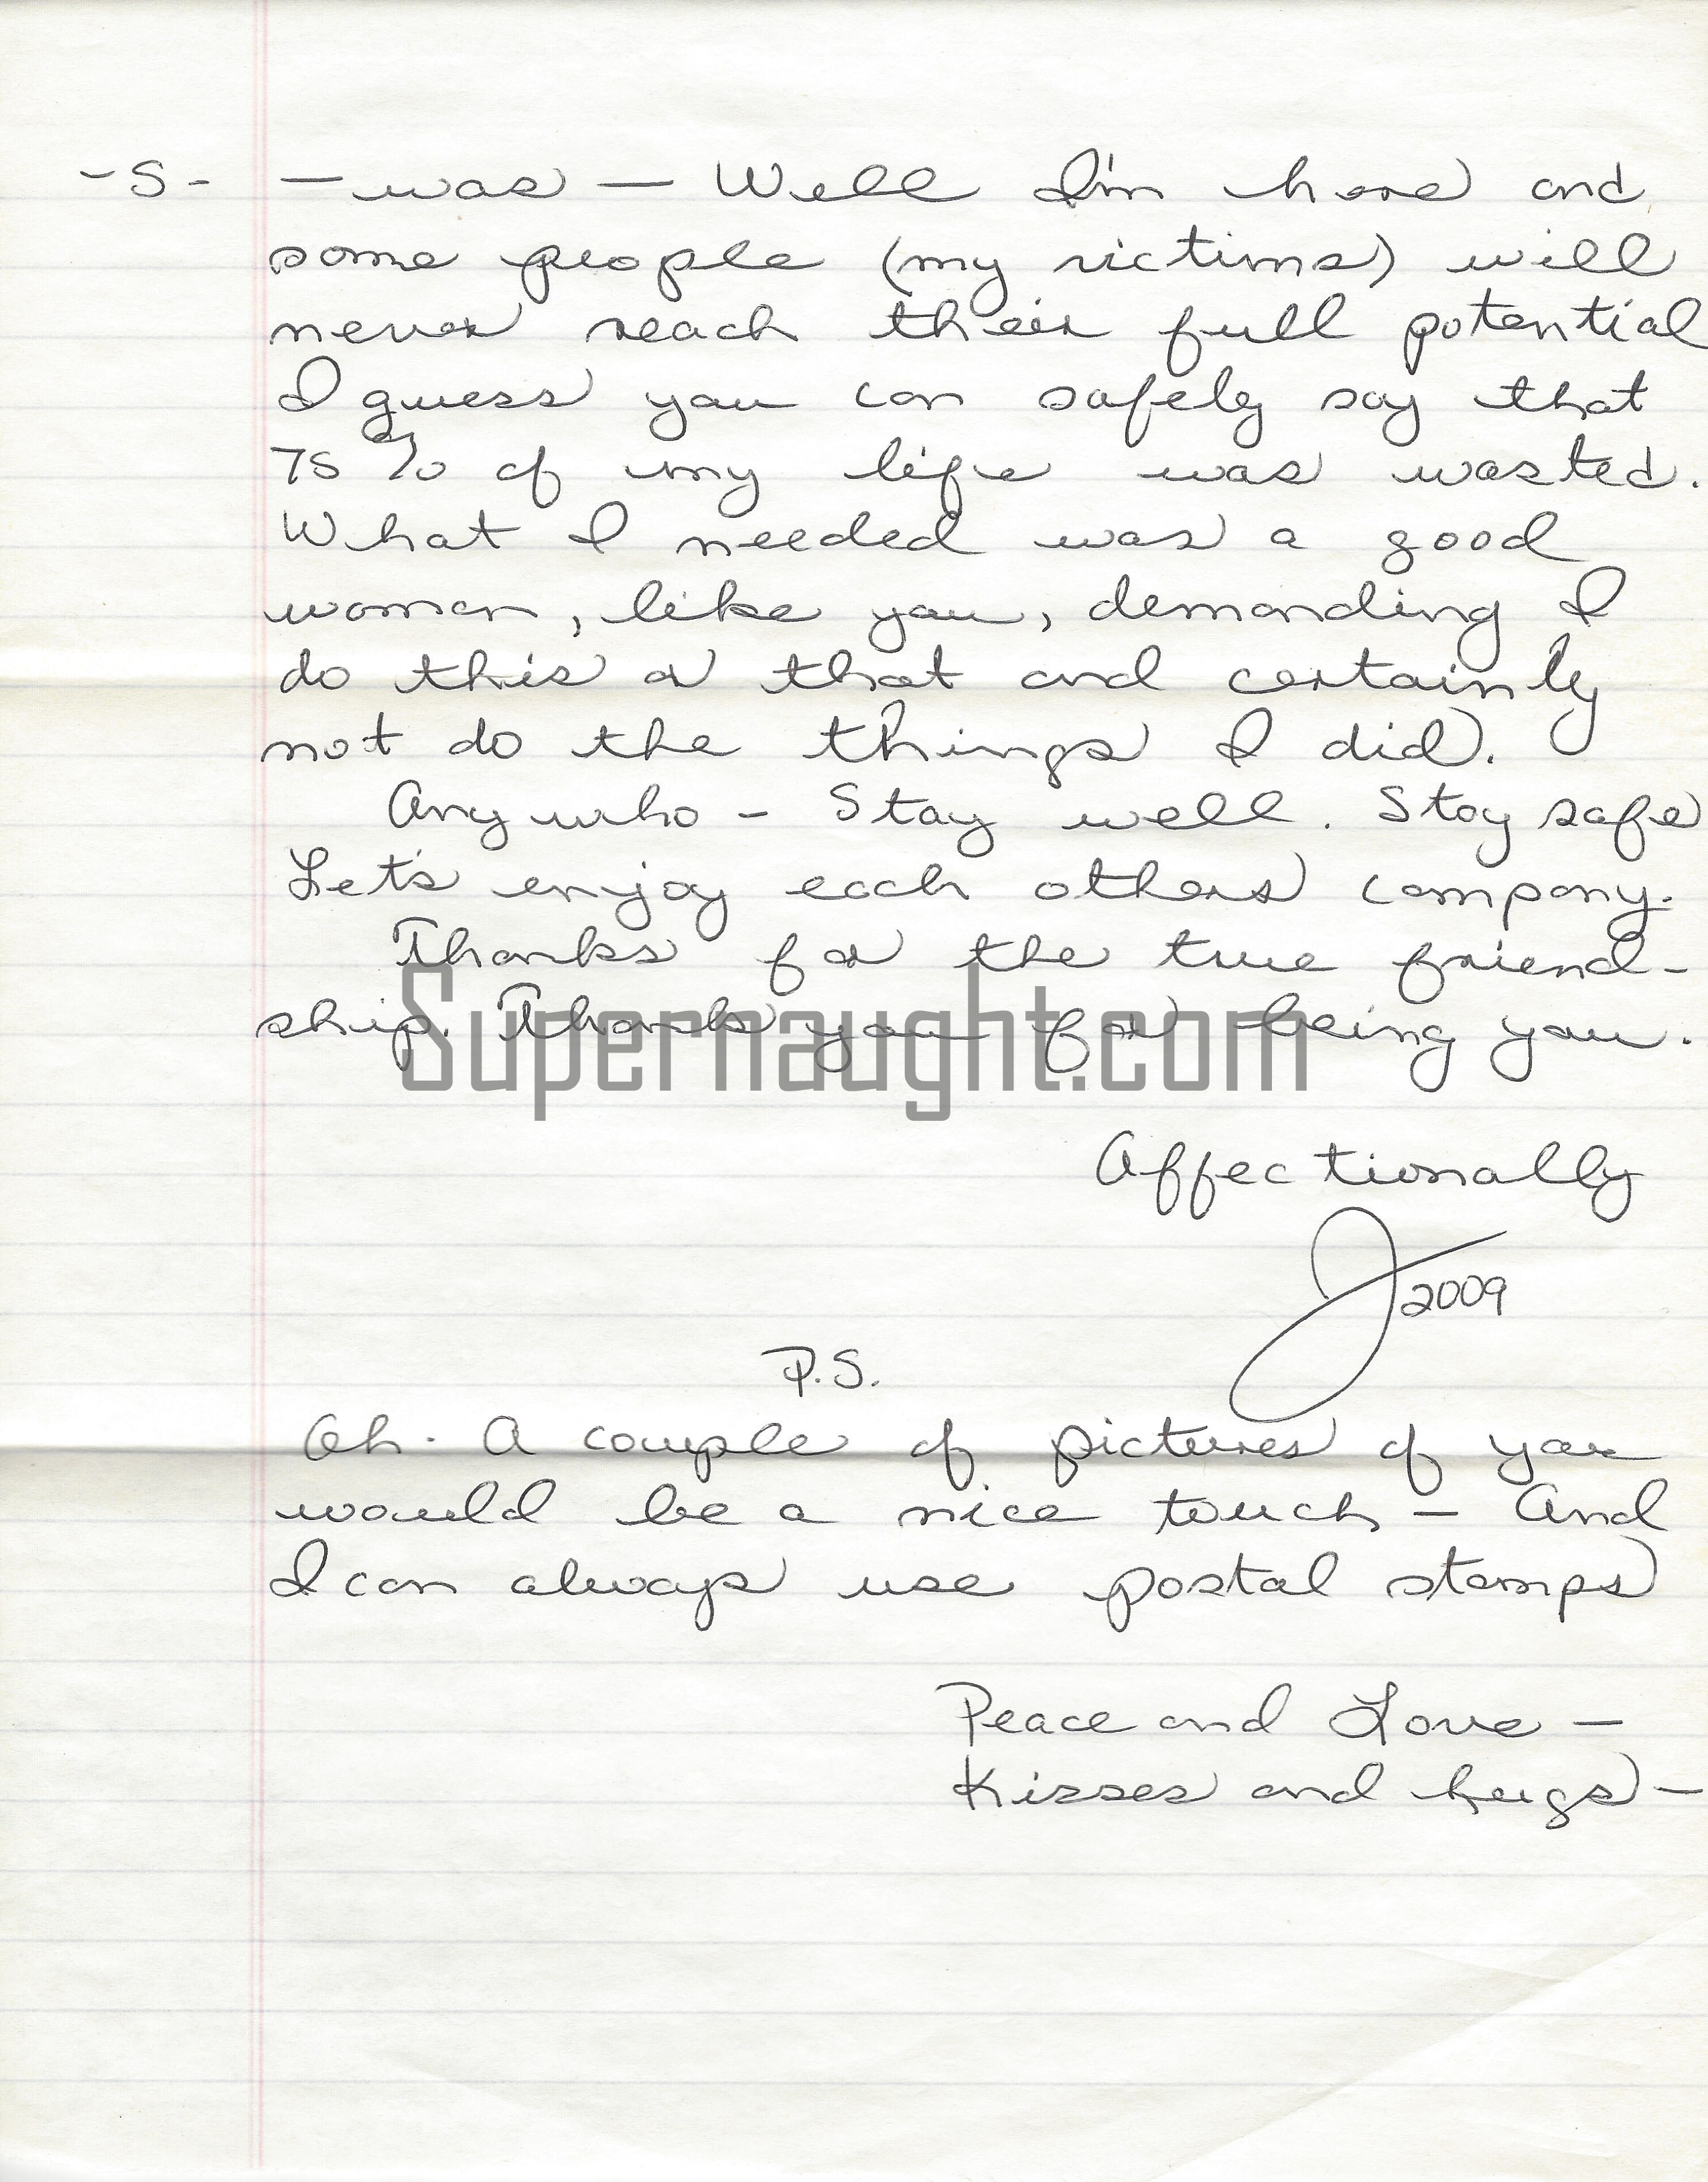 -5- - was - Well I'm here and
some people (my victims) will
never reach their full potential
I guess you can safely say that
75% of my life was wasted.
What I needed was a good
woman, like you, demanding I
do this or that and certainly
not do the things I did.
Anywho - Stay well. Stay safe
Let's enjoy each others company.
Thanks for the true friend-
ship. Thank you for being you.
Supernaught.com
Affectionally
J 2009
P.S.
Oh. A couple of pictures of you
would be a nice touch - And
I can always use postal stamps
Peace and Love -
Kisses and hugs -